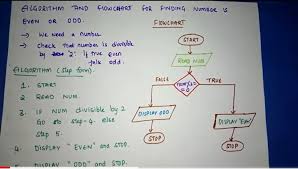 ALGORITHM AND FLOWCHART FOR FINDING NUMBER IS
EVEN OR ODD.
→ We need a number.
→ Check that number is divisible
by 2: if true even
false odd.
ALGORITHM (Step form).
1. START
2. READ NUM.
3. IF NUM divisible by 2
Go to step-4. else
Step 5.
4. DISPLAY "EVEN" and STOP.
5. DISPLAY "ODD" and STOP.
FLOWCHART
START
READ NUM
FALSE
TRUE
= 0
DISPLAY ODD
DISPLAY "EVEN"
STOP
STOP